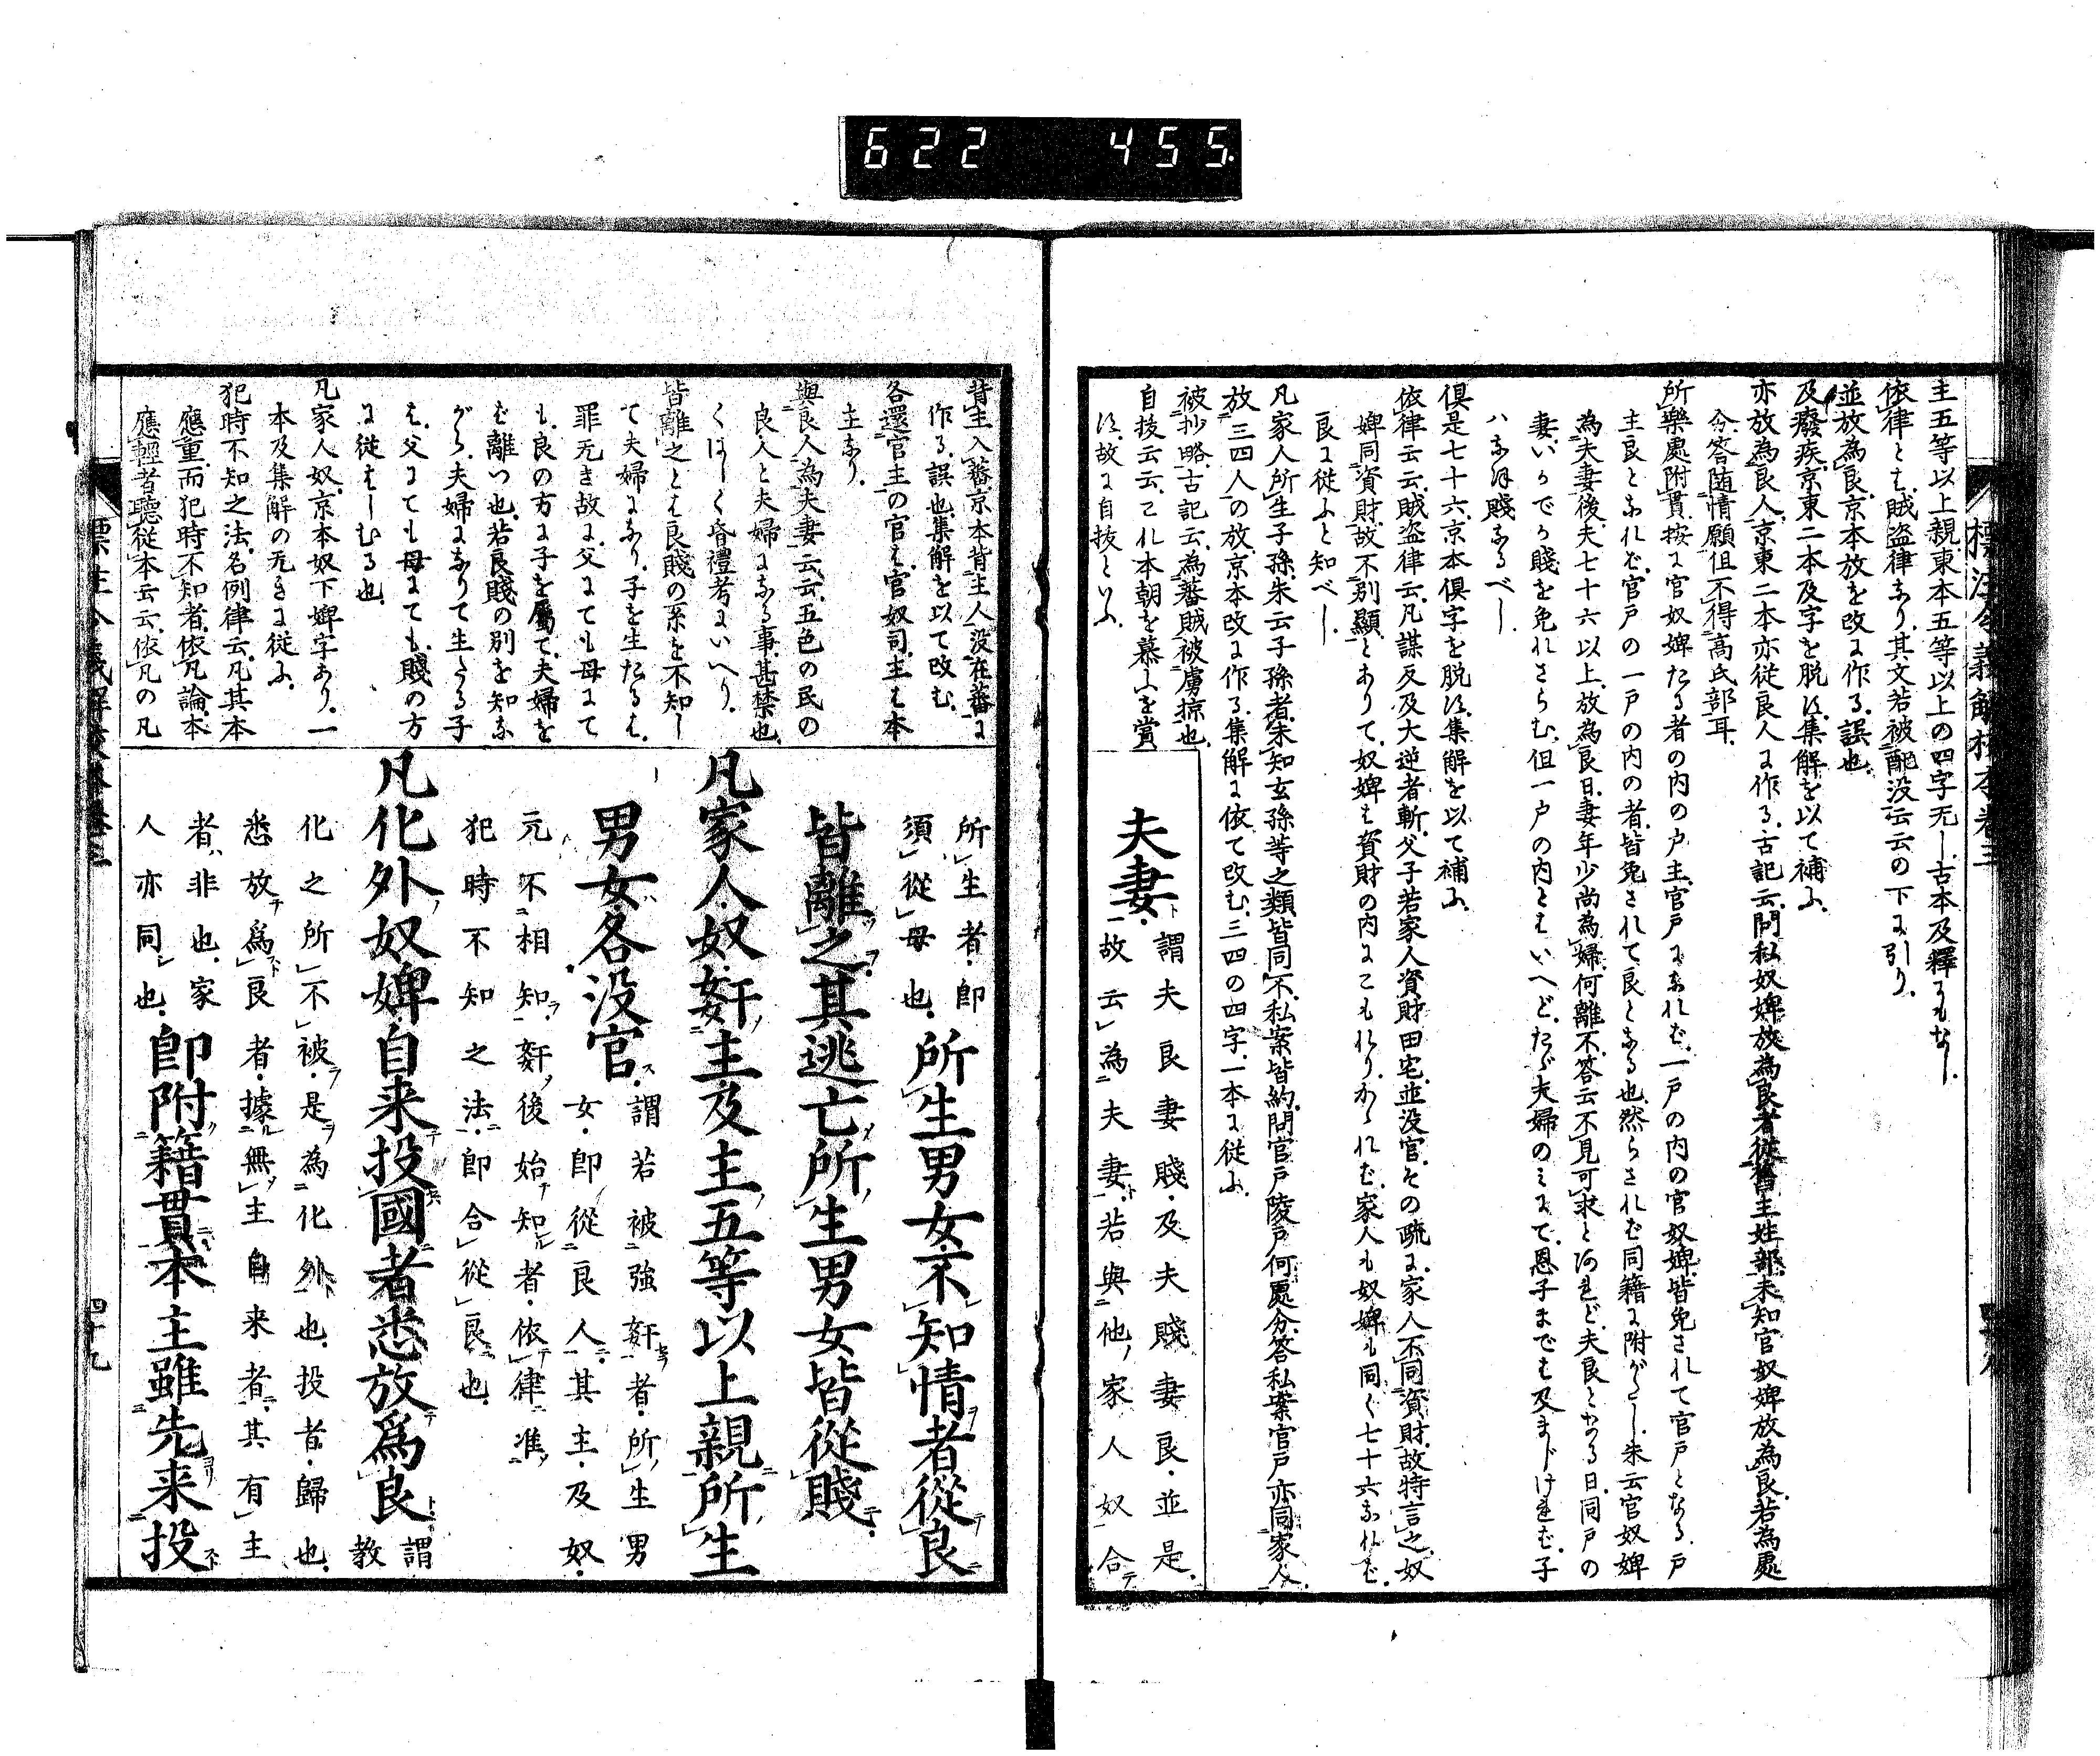 622 455
主五等以上親東本五等以上の四字无し古本及釋にもなし
依律とは賊盗律なり其文若被配没云云の下に引り
並放為良京本放を改に作る誤也
及癈疾京東二本及字を脱す集解を以て補ふ
亦放為良人京東二本亦従良人に作る古記云問私奴婢放為良者從舊主姓部未知官奴婢放為良若為處
分答随情願但不得高氏部耳
所樂處附貫按に官奴婢たる者の内の户主官戸になれば一戸の内の官奴婢皆免されて官戸となる戸
主良となれば官戸の一戸の内の者皆免されて良となる也然らされば同籍に附がたし朱云官奴婢
為夫妻後夫七十六以上放為良日妻年少尚為婦何離不答云不見可求とあれど夫良となる日同戸の
妻いかでか賤を免れさらむ但一户の内とはいへどたゞ夫婦のみにて恩子までは及まじければ子
ハなほ賤なるべし
倶是七十六京本倶字を脱す集解を以て補ふ
依律云云賊盗律云凡謀反及大逆者斬父子若家人資財田宅並没官その疏に家人不同資財故特言之奴
婢同資財故不別顯とありて奴婢は資財の内にこもれりかゝれば家人も奴婢も同く七十六なれば
良に従ふと知べし
凡家人所生子孫朱云子孫者未知玄孫等之類皆同不私案皆約問官戸陵戸何處分答私案官戸亦同家人
放三四人の放京本改に作る集解に依て改む三四の四字一本に従ふ
被抄略古記云為蕃賊被虜掠也
自抜云云これ本朝を慕ふを賞
す故に自抜といふ
夫妻
謂夫良妻賤及夫賤妻良並是
故云為夫妻若與他家人奴合
背主入蕃京本背主人没在蕃に
作る誤也集解を以て改む
各還官主の官は官奴司主は本
主なり
與良人為夫妻云云五色の民の
良人と夫婦になる事甚禁也
くはしく昏禮考にいへり
皆離之とは良賤の系を不知し
て夫婦になり子を生たるは
罪无き故に父にても母にて
も良の方に子を屬て夫婦を
ば離つ也若良賤の別を知な
がら夫婦になりて生たる子
は父にても母にても賤の方
に従はしむる也
凡家人奴京本奴下婢字あり一
本及集解の无きに従ふ
犯時不知之法名例律云凡其本
應重而犯時不知者依凡論本
應輕者聽從本云云依凡の凡
所生者即
須從母也
所生男女不知情者從良
皆離之其逃亡所生男女皆從賤
凡家人奴姧主及主五等以上親所生
男女各没官
謂若被強姧者所生男
女即從良人其主及奴
元不相知姧後始知者依律准
犯時不知之法即合從良也
凡化外奴婢自来投國者悉放爲良
謂
教
化之所不被是為化外也投者歸也
悉放爲良者據無主自来者其有主
者非也家
人亦同也
即附籍貫本主雖先来投
四十九